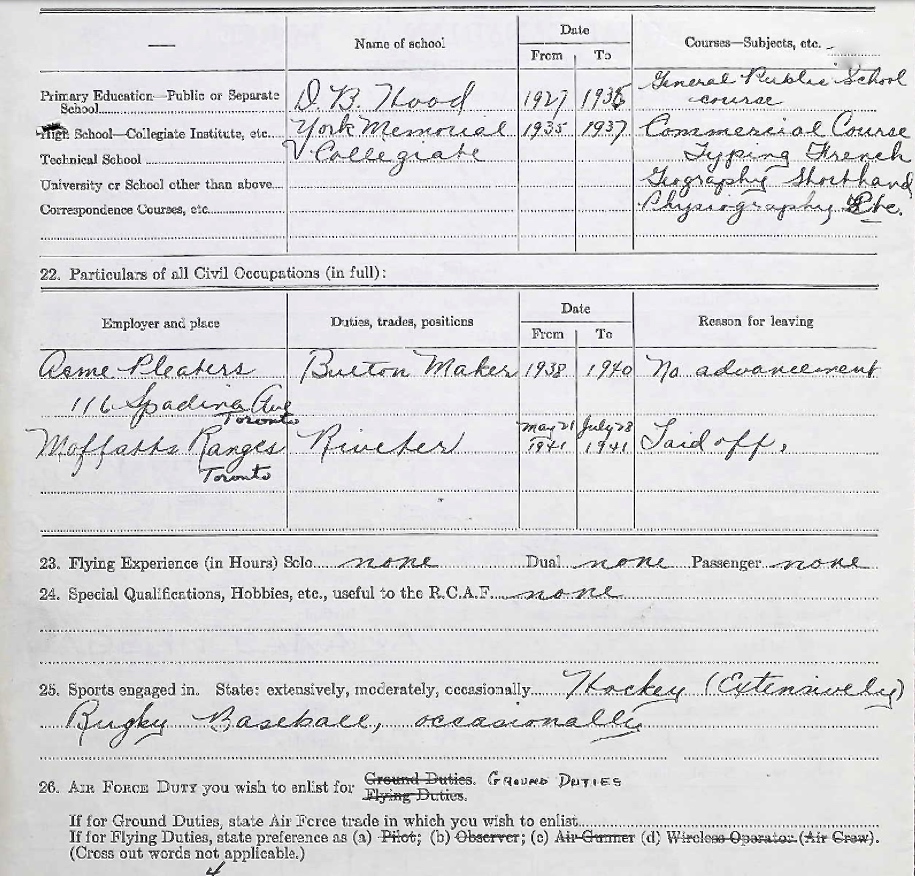 — Name of school Date Courses—Subjects, etc.
From To
Primary Education—Public or Separate School D. B. Hood 1927 1935 General Public School course
High School—Collegiate Institute, etc. York Memorial 1935 1937 Commercial Course
Technical School Collegiate Typing French
University or School other than above Geography Shorthand
Correspondence Courses, etc. Physiography Etc.
22. Particulars of all Civil Occupations (in full):
Employer and place Duties, trades, positions Date Reason for leaving
From To
Acme Pleaters Button Maker 1938 1940 No advancement
116 Spadina Ave
Toronto
Moffatts Ranges Riveter May 21 1941 July 28 1941 Laid off.
Toronto
23. Flying Experience (in Hours) Solo none Dual none Passenger none
24. Special Qualifications, Hobbies, etc., useful to the R.C.A.F. none
25. Sports engaged in. State: extensively, moderately, occasionally Hockey (Extensively)
Rugby Baseball, occasionally
26. AIR FORCE DUTY you wish to enlist for Ground Duties. GROUND DUTIES
Flying Duties.
If for Ground Duties, state Air Force trade in which you wish to enlist
If for Flying Duties, state preference as (a) Pilot; (b) Observer; (c) Air Gunner (d) Wireless Operator (Air Crew).
(Cross out words not applicable.)